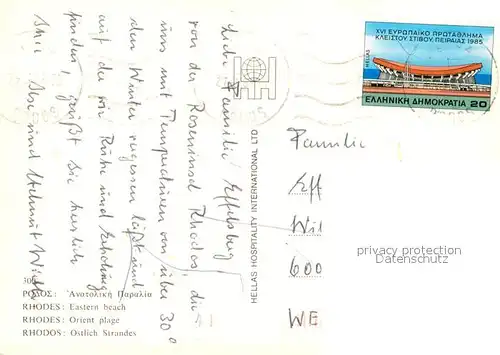 Liebe Familie Effelsberg!
von der Roseninsel Rhodos, die
uns mit Temperaturen von über 30°
den Winter vergessen läßt und
auf der wir Ruhe und Erholung
finden, grüßt Sie herzlich
Ihre
und Helmut
ΡΟΔΟΣ: Ἀνατολικὴ Παραλία
RHODES: Eastern beach
RHODES: Orient plage
RHODOS: Östlich Strandes
HELLAS HOSPITALITY INTERNATIONAL LTD
XVI ΕΥΡΩΠΑΪΚΟ ΠΡΩΤΑΘΛΗΜΑ
ΚΛΕΙΣΤΟΥ ΣΤΙΒΟΥ, ΠΕΙΡΑΙΑΣ 1985
HELLAS
ΕΛΛΗΝΙΚΗ ΔΗΜΟΚΡΑΤΙΑ 20
Familie
Eff
Wil
600
WE
privacy protection
Datenschutz